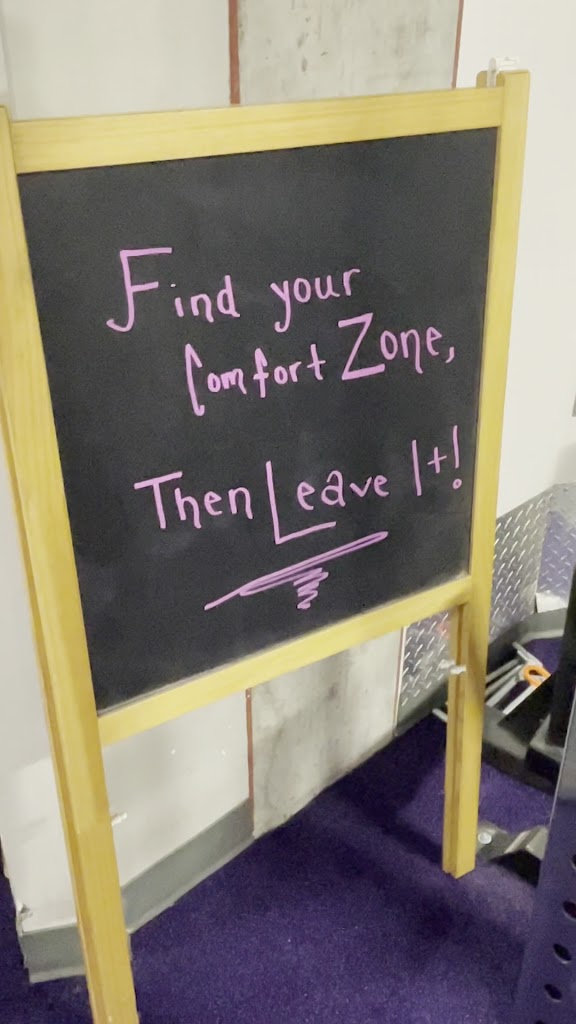 Find your
Comfort Zone,
Then Leave It!